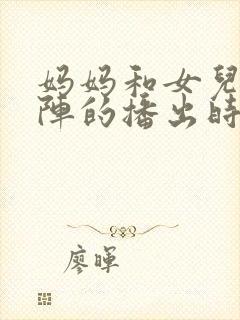 妈妈和女兒
陣的播出時
廖暉